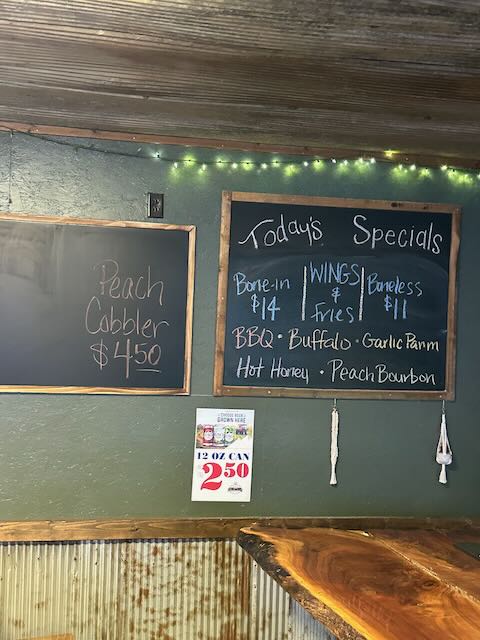 Peach
Cobbler
$4.50
Today's Specials
Bone-in
$14
WINGS
&
Fries
Boneless
$11
BBQ • Buffalo • Garlic Parm
Hot Honey • Peach Bourbon
GROWN HERE
12 OZ CAN
$2.50